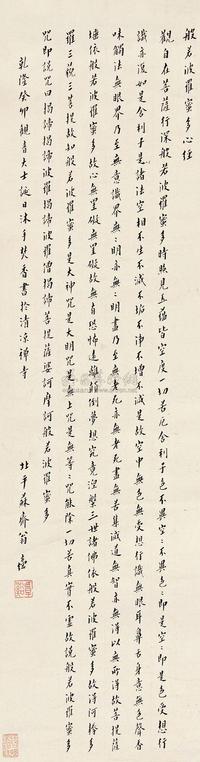 般若波羅蜜多心經
觀自在菩薩行深般若波羅蜜多時照見五蘊皆空度一切苦厄舍利子色不異空:不異色:即是空:即是色受想行
識亦復如是舍利子是諸法空相不生不滅不垢不淨不增不減是故空中無色無受想行識無眼耳鼻舌身意無色聲香
味觸法無眼界乃至無意識界無:明亦無:明盡乃至無老死亦無老死盡無苦集滅道無智亦無得以無所得故菩提薩
埵依般若波羅蜜多故心無罣礙無罣礙故無有恐怖遠離顛倒夢想究竟涅槃三世諸佛依般若波羅蜜多故得阿耨多
羅三藐三菩提故知般若波羅蜜多是大神咒是大明咒是無上咒是無等:咒能除一切苦真實不虛故說般若波羅蜜多
咒即說咒曰揭諦揭諦波羅揭諦波羅僧揭諦菩提薩婆訶摩訶般若波羅蜜多
乾隆癸卯觀音大士誕日沐手焚香書於清涼禪寺
北平蘇齋翁方綱